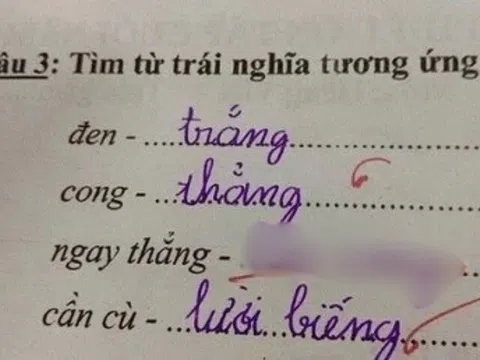 âu 3: Tìm từ trái nghĩa tương ứng
đen - .....trắng....................
cong - ...thẳng....................
ngay thẳng -
cần cù - ...lười...biếng....